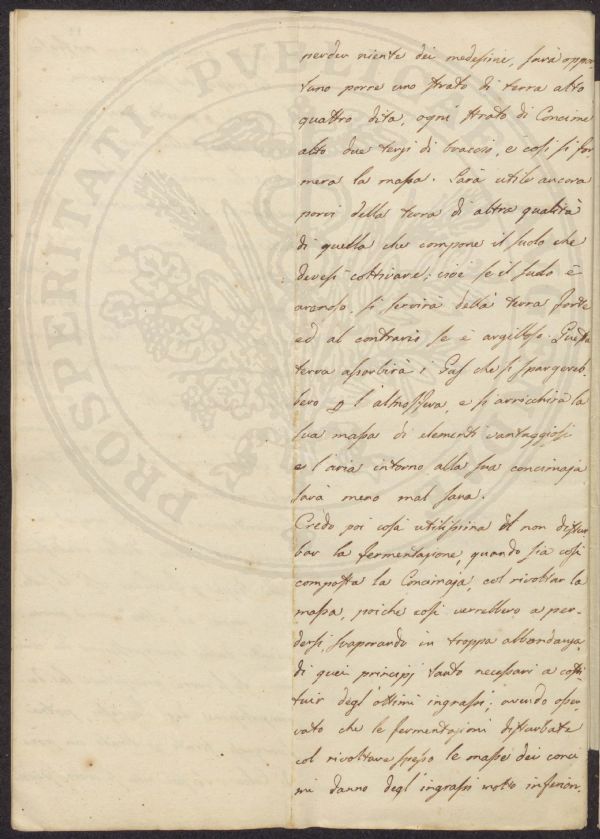 perder niente dei medesimi, sarà oppor-
tuno porre uno strato di terra alto
quattro dita, ogni strato di Concime
alto due terzi di braccio, e così si for
merà la massa. Sarà utile ancora
porvi della terra di altra qualità
di quella che compone il suolo che
devesi coltivare; cioè se il suolo è
arenoso, si servirà della terra forte
ed al contrario se è argilloso. Questa
terra assorbirà i Gas che si spargereb-
bero p l'atmosfera, e si arricchirà la
sua massa di elementi vantaggiosi
e l'aria intorno alla sua concimaja
sarà meno mal sana.
Credo poi cosa utilissima il non distur
bar la fermentazione, quando sia così
composta la Concimaja, col rivoltar la
massa, poiche così verrebbero a per-
dersi, svaporando in troppa abbondanza,
di quei principj tanto necessari a costi-
tuir degl'ottimi ingrassi; avendo osser-
vato che le fermentazioni disturbate
col rivoltare spesso le masse dei conci
mi danno degl'ingrassi molto inferiori.
PROSPERITATI PVBLICAE